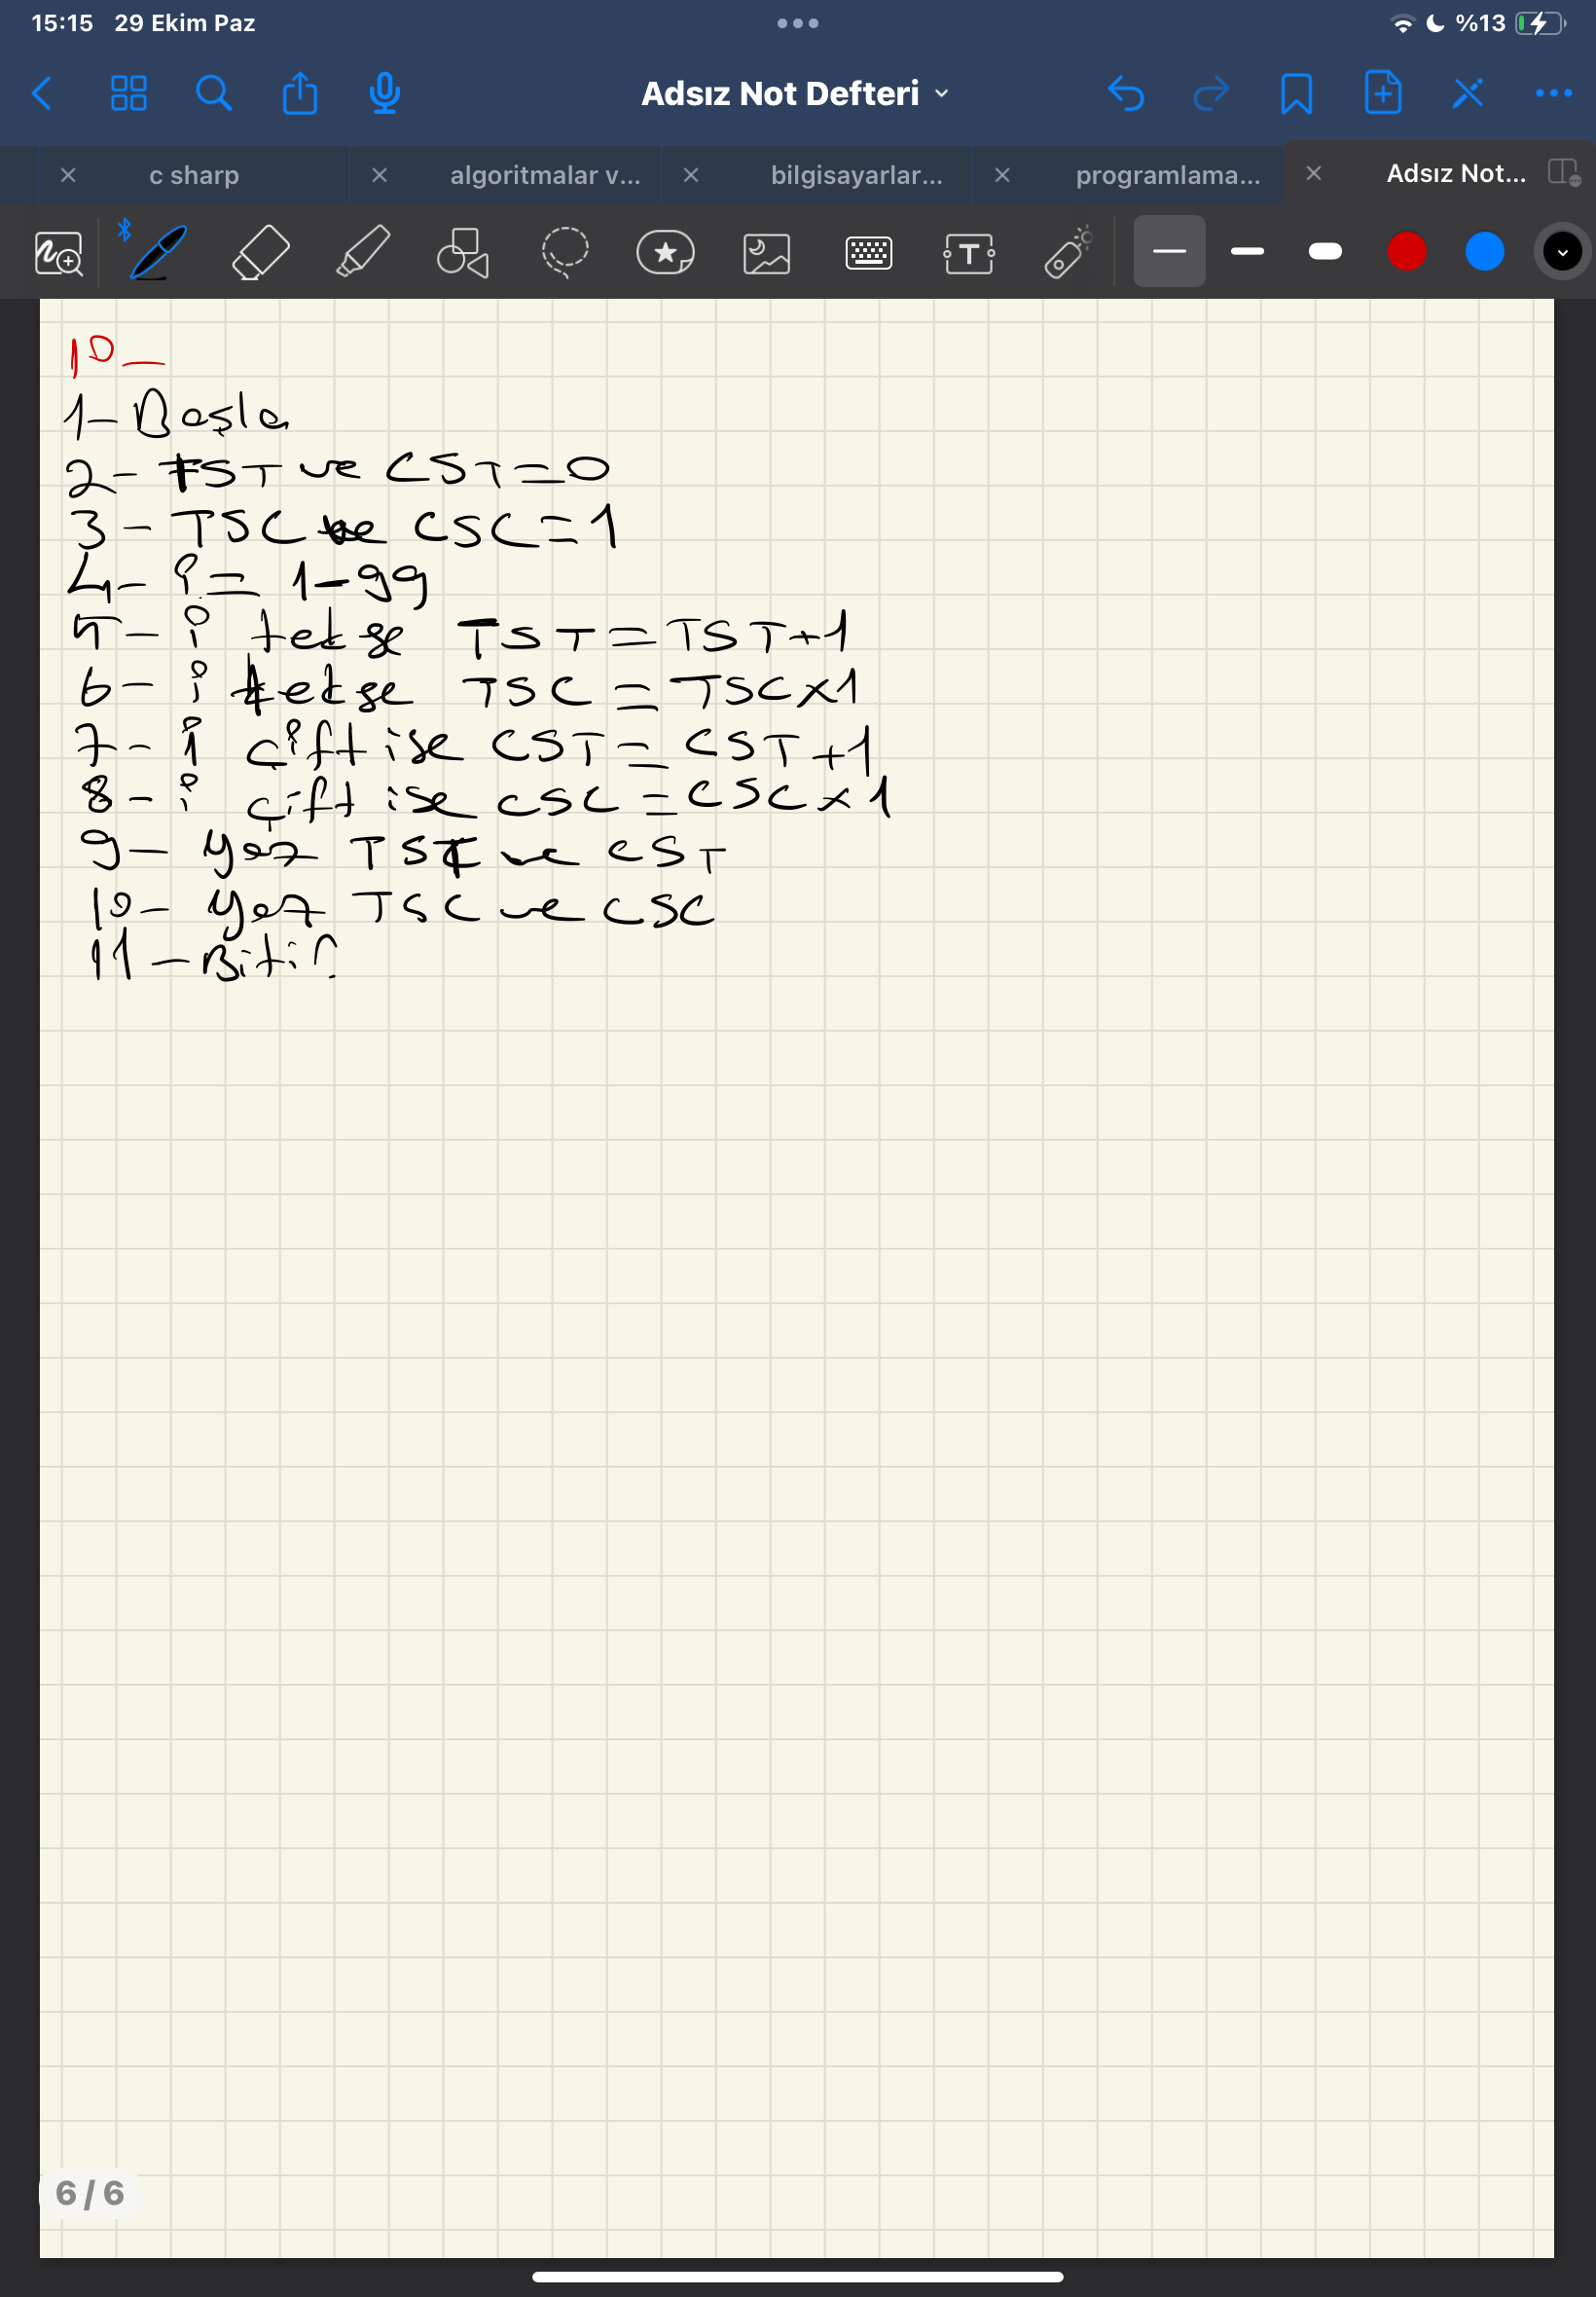 15:15 29 Ekim Paz %13
Adsız Not Defteri
c sharp algoritmalar v... bilgisayarlar... programlama... Adsız Not...
10-
1- Başla
2- TST ve CST=0
3- TSC ve CSC=1
4- i= 1-99
5- i tekse TST=TST+1
6- i tekse TSC=TSCx1
7- i çift ise CST=CST+1
8- i çift ise CSC=CSCx1
9- yaz TST ve CST
10- yaz TSC ve CSC
11- Bitir
6/6